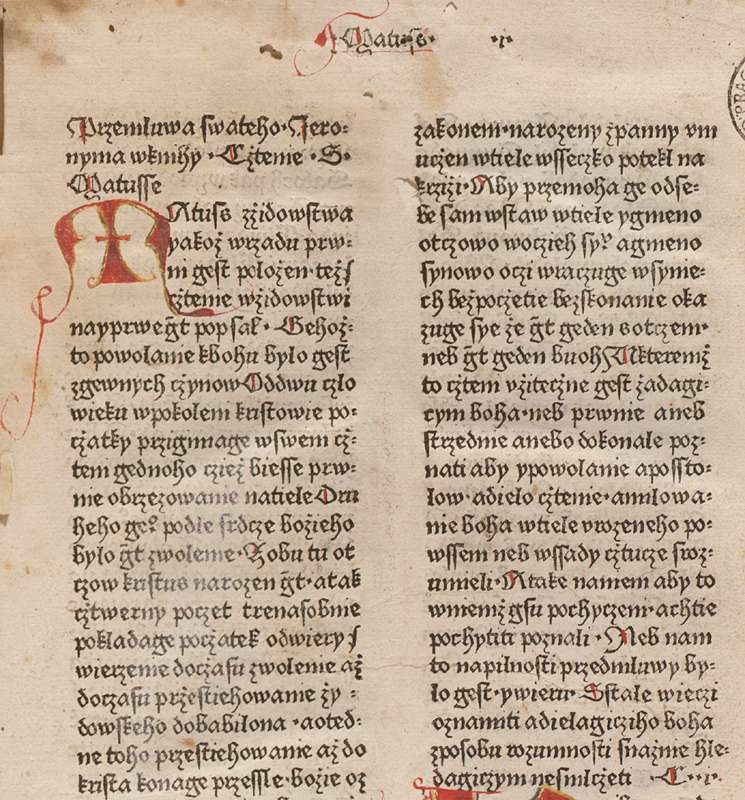 Matuss · ·i·
Przemluwa swateho·Jero:
nyma wknihy · Cztenie · S·
Matusse
Atuss zzidowstwa
yakoż wrzadu prw:
ni gest položen·tež ſ
cztenie wżidowstwi
nayprwe g̃t popsal · Gehož:
to powolanie kbohu bylo gest
zgewnych czynow Oddwu czlo
wieku wpokoleni kristowie po:
czatky przignmage w swem cz:
tem gednoho czież biesse prw:
nie obrzezowanie natiele Dru
heho geꝰ podle srdcze božieho
bylo g̃t zwolenie· Zobu tu ot
czow kristus narozen g̃t·atak
cztwerny poczet trenasobnie
pokladage poczatek odwiery ſ
wierzenie doczasu zwolenie až
doczasu przestiehowanie ży ·:
dowskeho dobabilona ·aoted:
ne toho przestiehowanie až do
krista konage przessle·bożie oz
zakonem·narozeny zpanny vm
uczen wtiele wsseczko potekl na
krzizi·Aby przemoha ge odse:
be sam wstaw wtiele ygmeno
otczowo woczieh syꝰ agmeno
synowo oczi wraczuge wsyme:
ch bezpoczetie bezskonanie oka
zuge sye że g̃t geden sotczem·
neb g̃t geden buoh Akteremž
to cztem vžiteczne gest żadagi:
cym boha·neb prwnie aneb
strzednie anebo dokonale poz:
nati aby ypowolanie aposs̃to:
low·adielo cztenie·amilowa:
nie boha wtiele vrozeneho po:
wssem neb wssady cztucze sroz:
umieli·Atake namem aby to
wniemž gsu pochyczeni·achtie
pochytiti poznali · Neb nam
to napilnosti przedmluwy by:
lo gest·ywieru· Sstale wieczi
oznamiti adielagicziho boha
zposobu rozumnosti snażnie hle:
dagiczym nesmlczeti ·C··i·